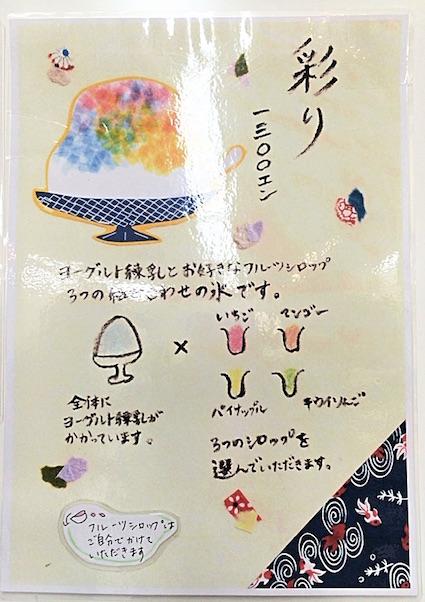 彩り
一三〇〇エン
ヨーグルト練乳とお好きなフルーツシロップ
3つの組み合わせの氷です。
×
いちご
マンゴー
パイナップル
キウイりんご
全体に
ヨーグルト練乳が
かかっています。
3つのシロップを
選んでいただきます。
フルーツシロップは
ご自分でかけて
いただきます